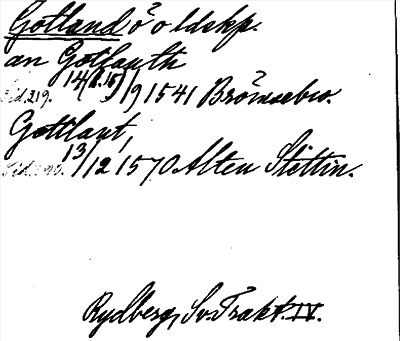 Gotland ö o ldskp.
an Gotlauth
Sid. 219. 14 (o. 15)/9 1541 Brömsebro.
Gottlant,
13/12 1570 Alten Stettin.
Rydberg, Sv. Trakt. IV.